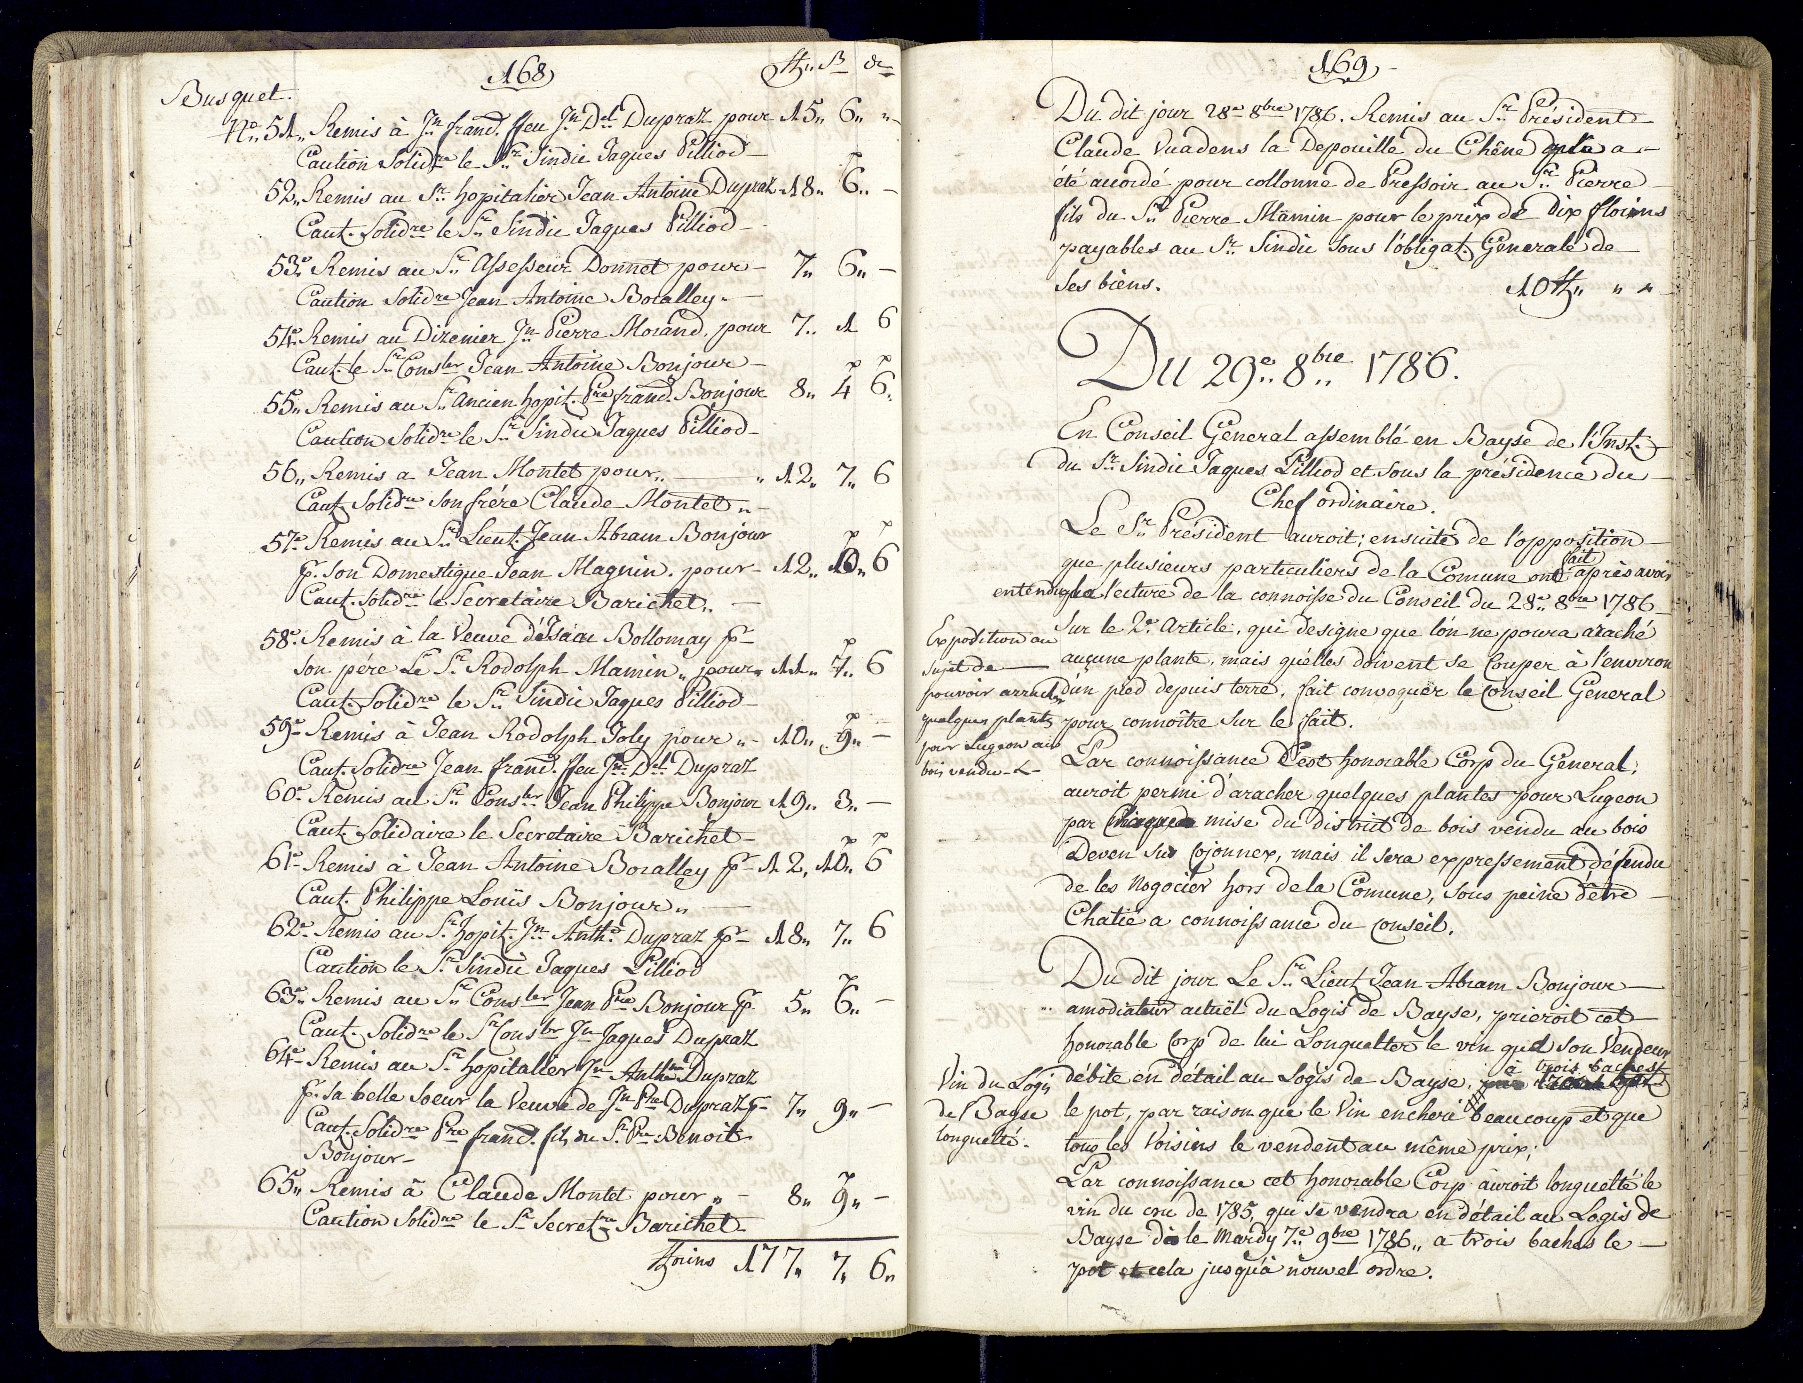 168
ff„ ß dr
Busquet.
No. 51„ Remis à Jn. franc. ffeu Jn. Dd. Dupraz pour 15„ 6„ „
Caution Solidre le Sr. Sindic Jaques Pilliod
52„ Remis au Sr. hopitalier Jean Antoine Dupraz 18„ 6„ —
Caut. Solidre le Sr. Sindic Jaques Pilliod
53e Remis au Sr. Assesseur Donnet pour 7„ 6„ —
Caution Solidre Jean Antoine Boralley.
54e Remis au Dizenier Jn Pierre Morand, pour 7„ 1 6
Caut. le Sr. Consler Jean Antoine Bonjour
55„ Remis au Sr. Ancien hopit. Pre franc. Bonjour 8„ 4 6„
Caution Solidre le Sr. Sindic Jaques Pilliod
56„ Remis a Jean Montet pour„ „ 12„ 7„ 6
Caut. Solidre Son frére Claude Montet„
57e Remis au Sr. Lieut. Jean Abram Bonjour
p. Son Domestique Jean Magnin. pour 12„ 10„ 6
Caut. Solidre le Secretaire Barichet„
58e Remis à la Veuve d'Isaac Bollomay p.
Son pére Le Sr. Rodolph Mamin„ pour„ 11„ 7„ 6
Caut. Solidre le Sr. Sindic Jaques Pilliod
59e Remis à Jean Rodolph Joly pour „ 10„ 9„ —
Caut. Solidre Jean franc. ffeu Jn. Dd. Dupraz
60e Remis au Sr. Consler Jean Philippe Bonjour 19„ 3„ —
Caut. Solidaire le Secretaire Barichet
61e Remis à Jean Antoine Boralley p. 12„ 10„ 6
Caut. Philippe Louïs Bonjour„
62e Remis au Sr. hopit. Jn. Anthe. Dupraz p. 18„ 7„ 6
Caution le Sr. Sindic Jaques Pilliod
63e„ Remis au Sr. Consler Jean Pre Bonjour p. 5„ 6„ —
Caut. Solidre le Sr. Consler Jn. Jaques Dupraz
64e Remis au Sr. hopitallier Jn. Anthne Dupraz
p. Sa belle Soeur la Veuve de Jn. Pre Dupraz p. 7„ 9„ —
Caut. Solidre Pre franc. fils du Sr. Pre Benoit
Bonjour
65„ Remis à Claude Montet pour „ 8„ 9„ —
Caution Solidre le Sr. Secretre Barichet
florins 177„ 7„ 6„
169
Du dit jour 28e 8bre 1786. Remis au Sr. Président
Claude Vuadens la Depouille du Chêne qui a
été acordé pour collonne de Pressoir au Sr. Pierre
fils du Sr. Pierre Mamin pour le prix de Dix florins
payables au Sr. Sindic Sous l'obligat. Generale de
Ses biens. 10 ff„ „ „
Du 29e„ 8bre„ 1786.
En Conseil General assemblé en Bayse de l'Inst.
du Sr. Sindic Jaques Pilliod et Sous la présidence du
Chef ordinaire.
Le Sr. Président auroit; ensuite de l'opposition
que plusieurs particuliers de la Comune ont fait après avoir
entendu la lecture de la connoisse du Conseil du 28e„ 8bre 1786
Sur le 2e. Article, qui designe que l'on ne poura araché
aucune plante, mais qu'elles doivent se Couper à l'environ
d'un pied depuis terre, fait convoquer le Conseil General
pour connoître Sur le fait.
Expedition au
Sujet de
pouvoir arracher
quelques plantes
pour Lugeon au
bois vendu
Par connoissance Cest honorable Corp du General,
auroit permi d'aracher quelques plantes pour Lugeon
par Chaque mise du district de bois vendu au bois
Deven Sus Cojonnex, mais il Sera expressement défendu
de les Nogocier hors de la Comune, Sous peine d'être
Chatié a connoissance du Conseil.
Du dit jour Le Sr. Lieut. Jean Abram Bonjour
amodiateur actuël du Logis de Bayse, prieroit cet
honorable Corp de lui Longuelter le vin que Son Vendeur
débite en détail au Logis de Bayse, à trois baches
le pot, par raison que le Vin encheri beaucoup et que
tous les Voisins le vendent au même prix;
Vin du Logis
de Bayse
longuelté.
Par connoissance cet honorable Corp auroit longuelté le
vin du cru de 1785, qui se vendra en détail au Logis de
Bayse dès le Mardy 7e„ 9bre 1786„ a trois baches le
pot et cela jusqu'à nouvel ordre.